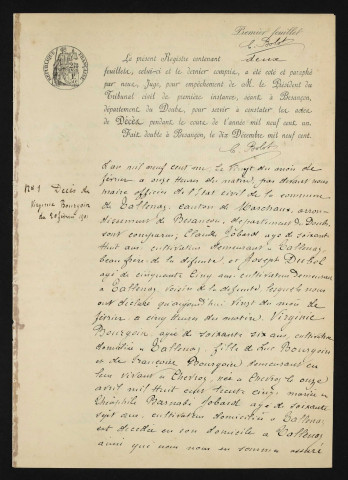 Premier feuillet
E. Bolot
Le présent Registre contenant deux
feuillets, celui-ci et le dernier compris, a été coté et paraphé
par nous, Juge, pour empêchement de M. le Président du
Tribunal civil de première instance, séant à Besançon,
département du Doubs, pour servir à constater les actes
de Décès, pendant le cours de l'année mil neuf cent un.
Fait double à Besançon, le dix Décembre mil neuf cent.
E. Bolot
N° 1 Décès de
Virginie Bourgoin
du 20 février 1901
L'an mil neuf cent un le vingt du mois de
février à onze heures du matin par devant nous
maire officier de l'état civil de la commune
de Tallenay, canton de Marchaux, arron-
dissement de Besançon, département du Doubs,
sont comparus; Claude Jobard âgé de soixante
huit ans, cultivateur demeurant à Tallenay,
beau frère de la défunte et Joseph
âgé de cinquante cinq ans cultivateur demeurant
à Tallenay, voisin de la défunte, lesquels nous
ont déclaré qu'aujourd'hui vingt du mois de
février à cinq heures du matin, Virginie
Bourgoin, âgée de soixante six ans, cultivatrice
domiciliée à Tallenay, fille de Luc Bourgoin
et de Françoise Bourgoin demeurant en
leur vivant à Chevroz, née à Chevroz le onze
avril mil huit cent trente cinq, mariée à
Théophile Barnabé Jobard âgé de soixante
sept ans, cultivateur domicilié à Tallenay,
est décédée en son domicile à Tallenay
ainsi que nous nous en sommes assuré